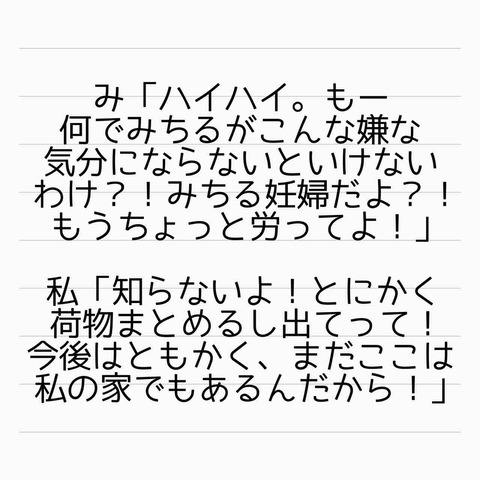 み「ハイハイ。もー
何でみちるがこんな嫌な
気分にならないといけない
わけ？！みちる妊婦だよ？！
もうちょっと労ってよ！」
私「知らないよ！とにかく
荷物まとめるし出てって！
今後はともかく、まだここは
私の家でもあるんだから！」